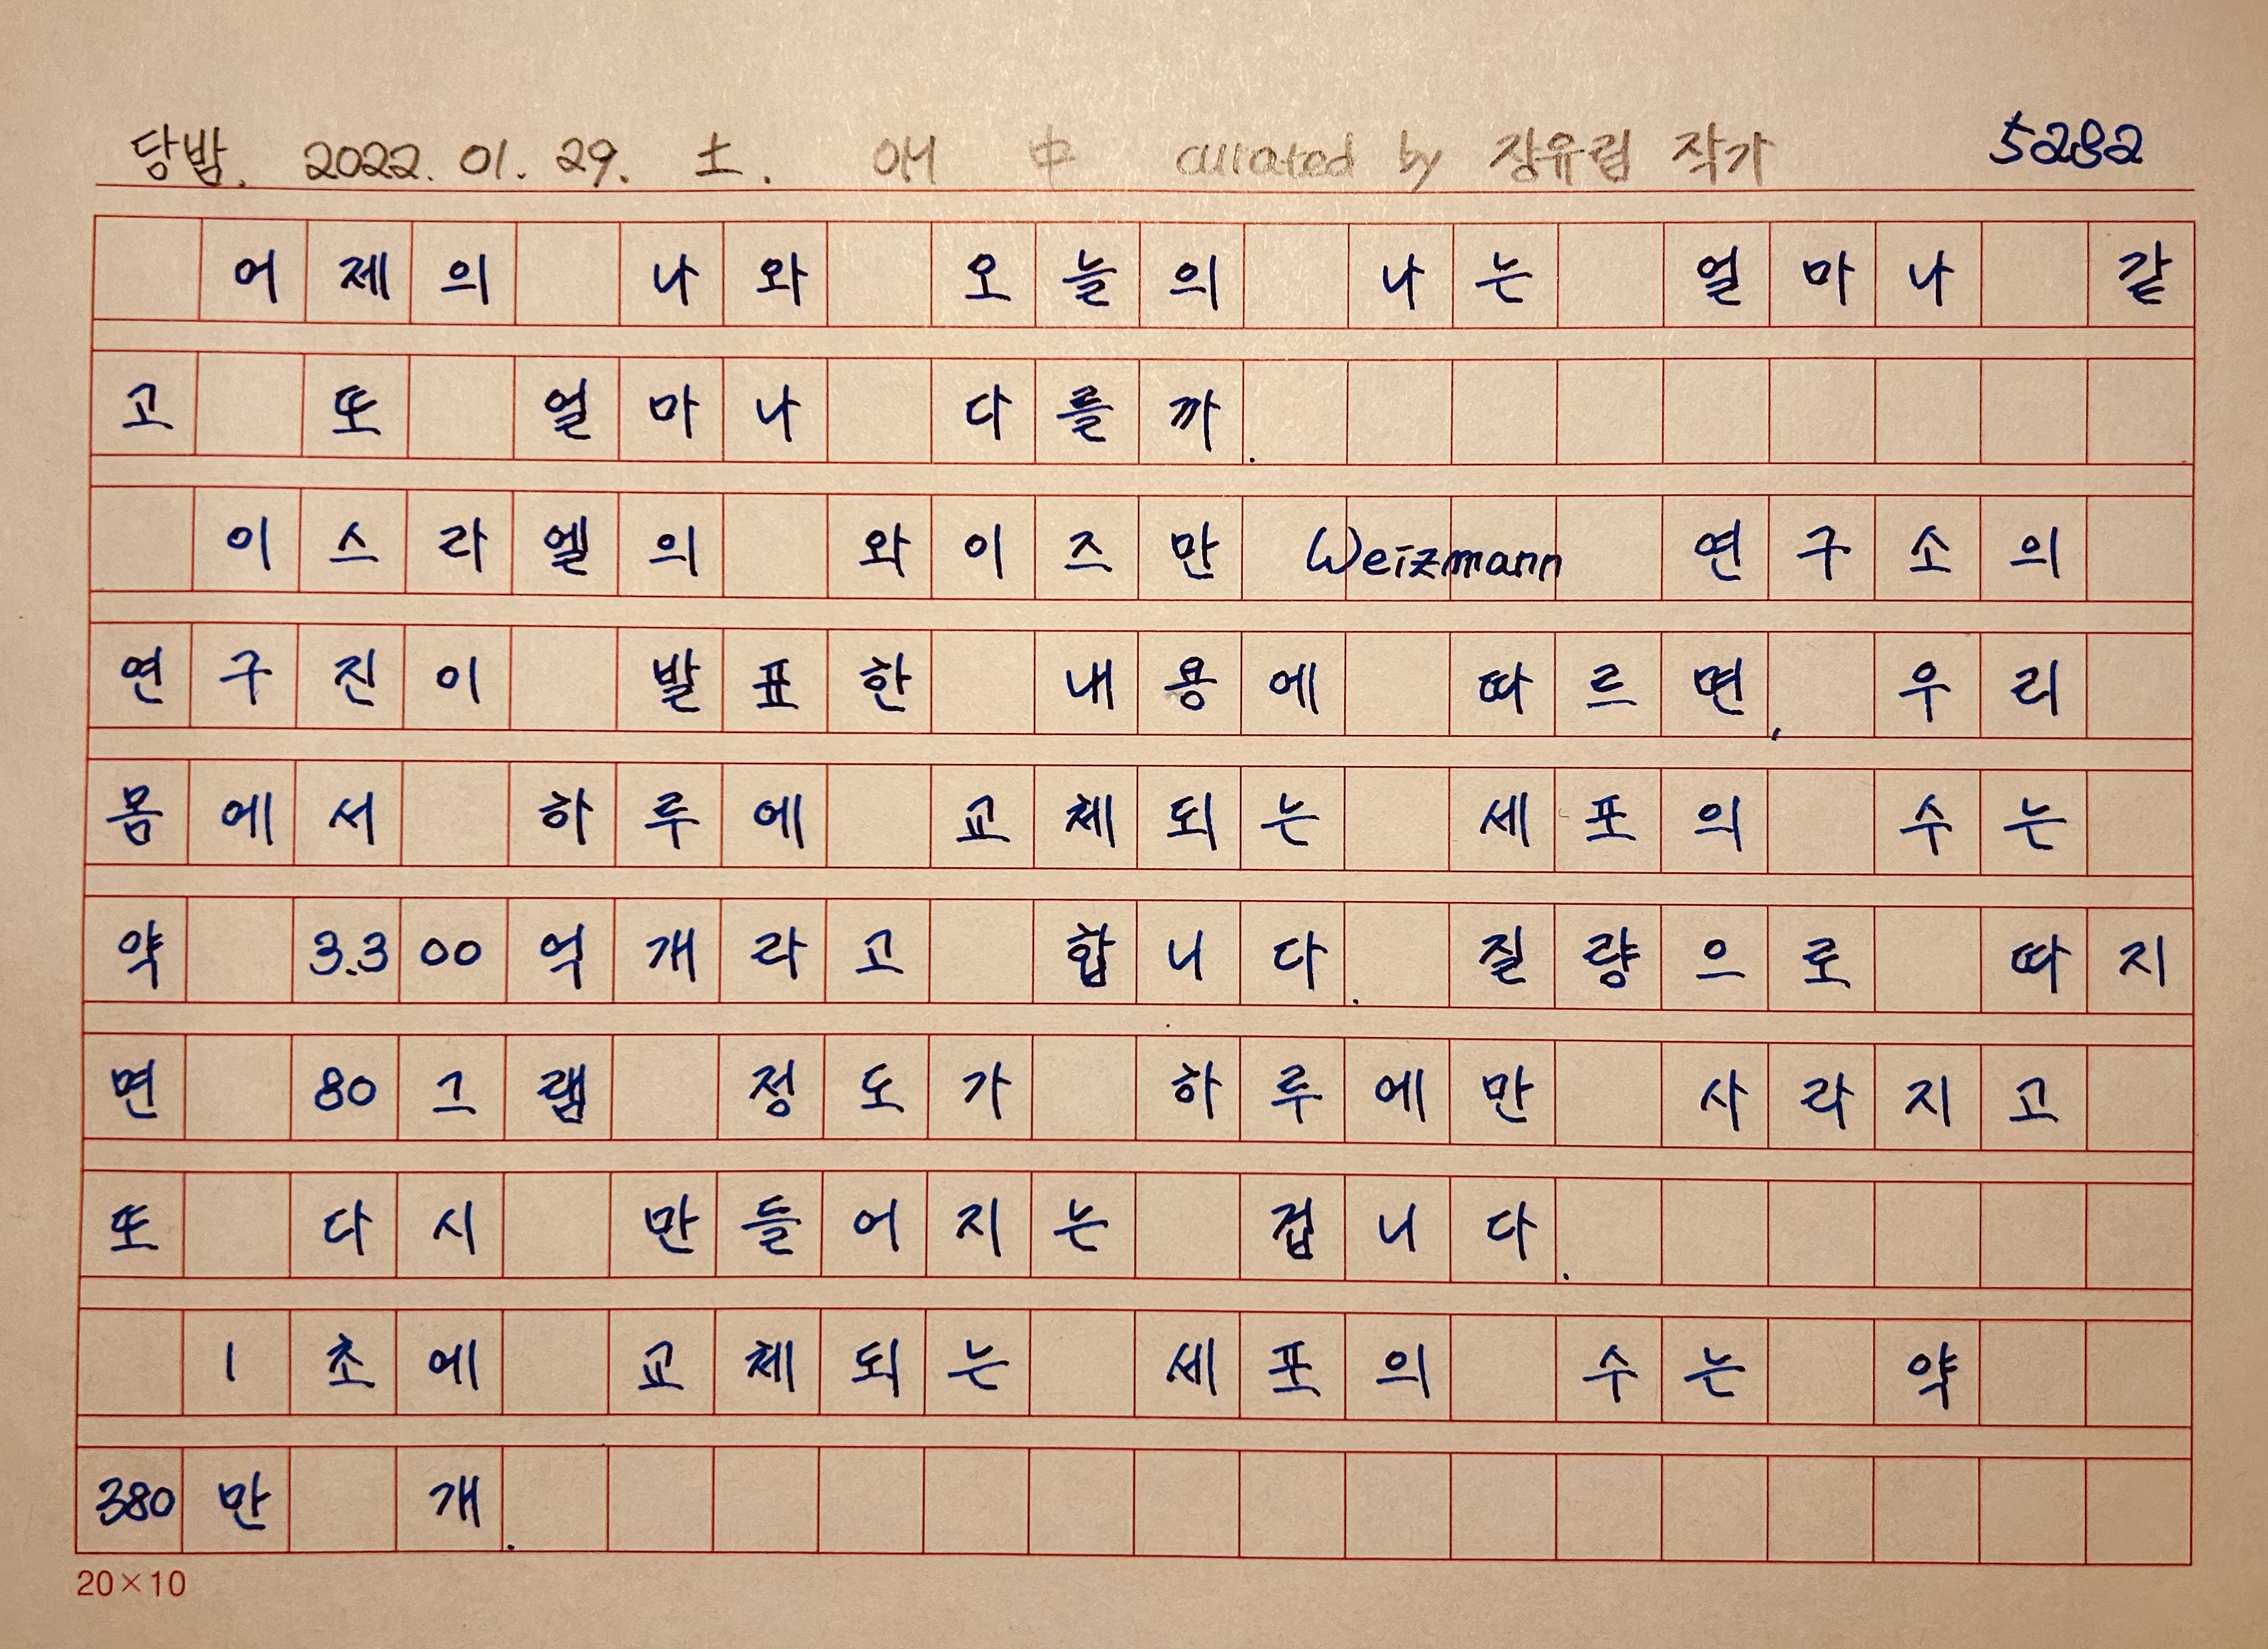 당밤. 2022. 01. 29. 土. 애 中 curated by 장유림 작가 5282
어제의 나와 오늘의 나는 얼마나 같
고 또 얼마나 다를까.
이스라엘의 와이즈만 Weizmann 연구소의
연구진이 발표한 내용에 따르면, 우리
몸에서 하루에 교체되는 세포의 수는
약 3.300억개라고 합니다. 질량으로 따지
면 80그램 정도가 하루에만 사라지고
또 다시 만들어지는 겁니다.
1초에 교체되는 세포의 수는 약
380만 개.
20×10